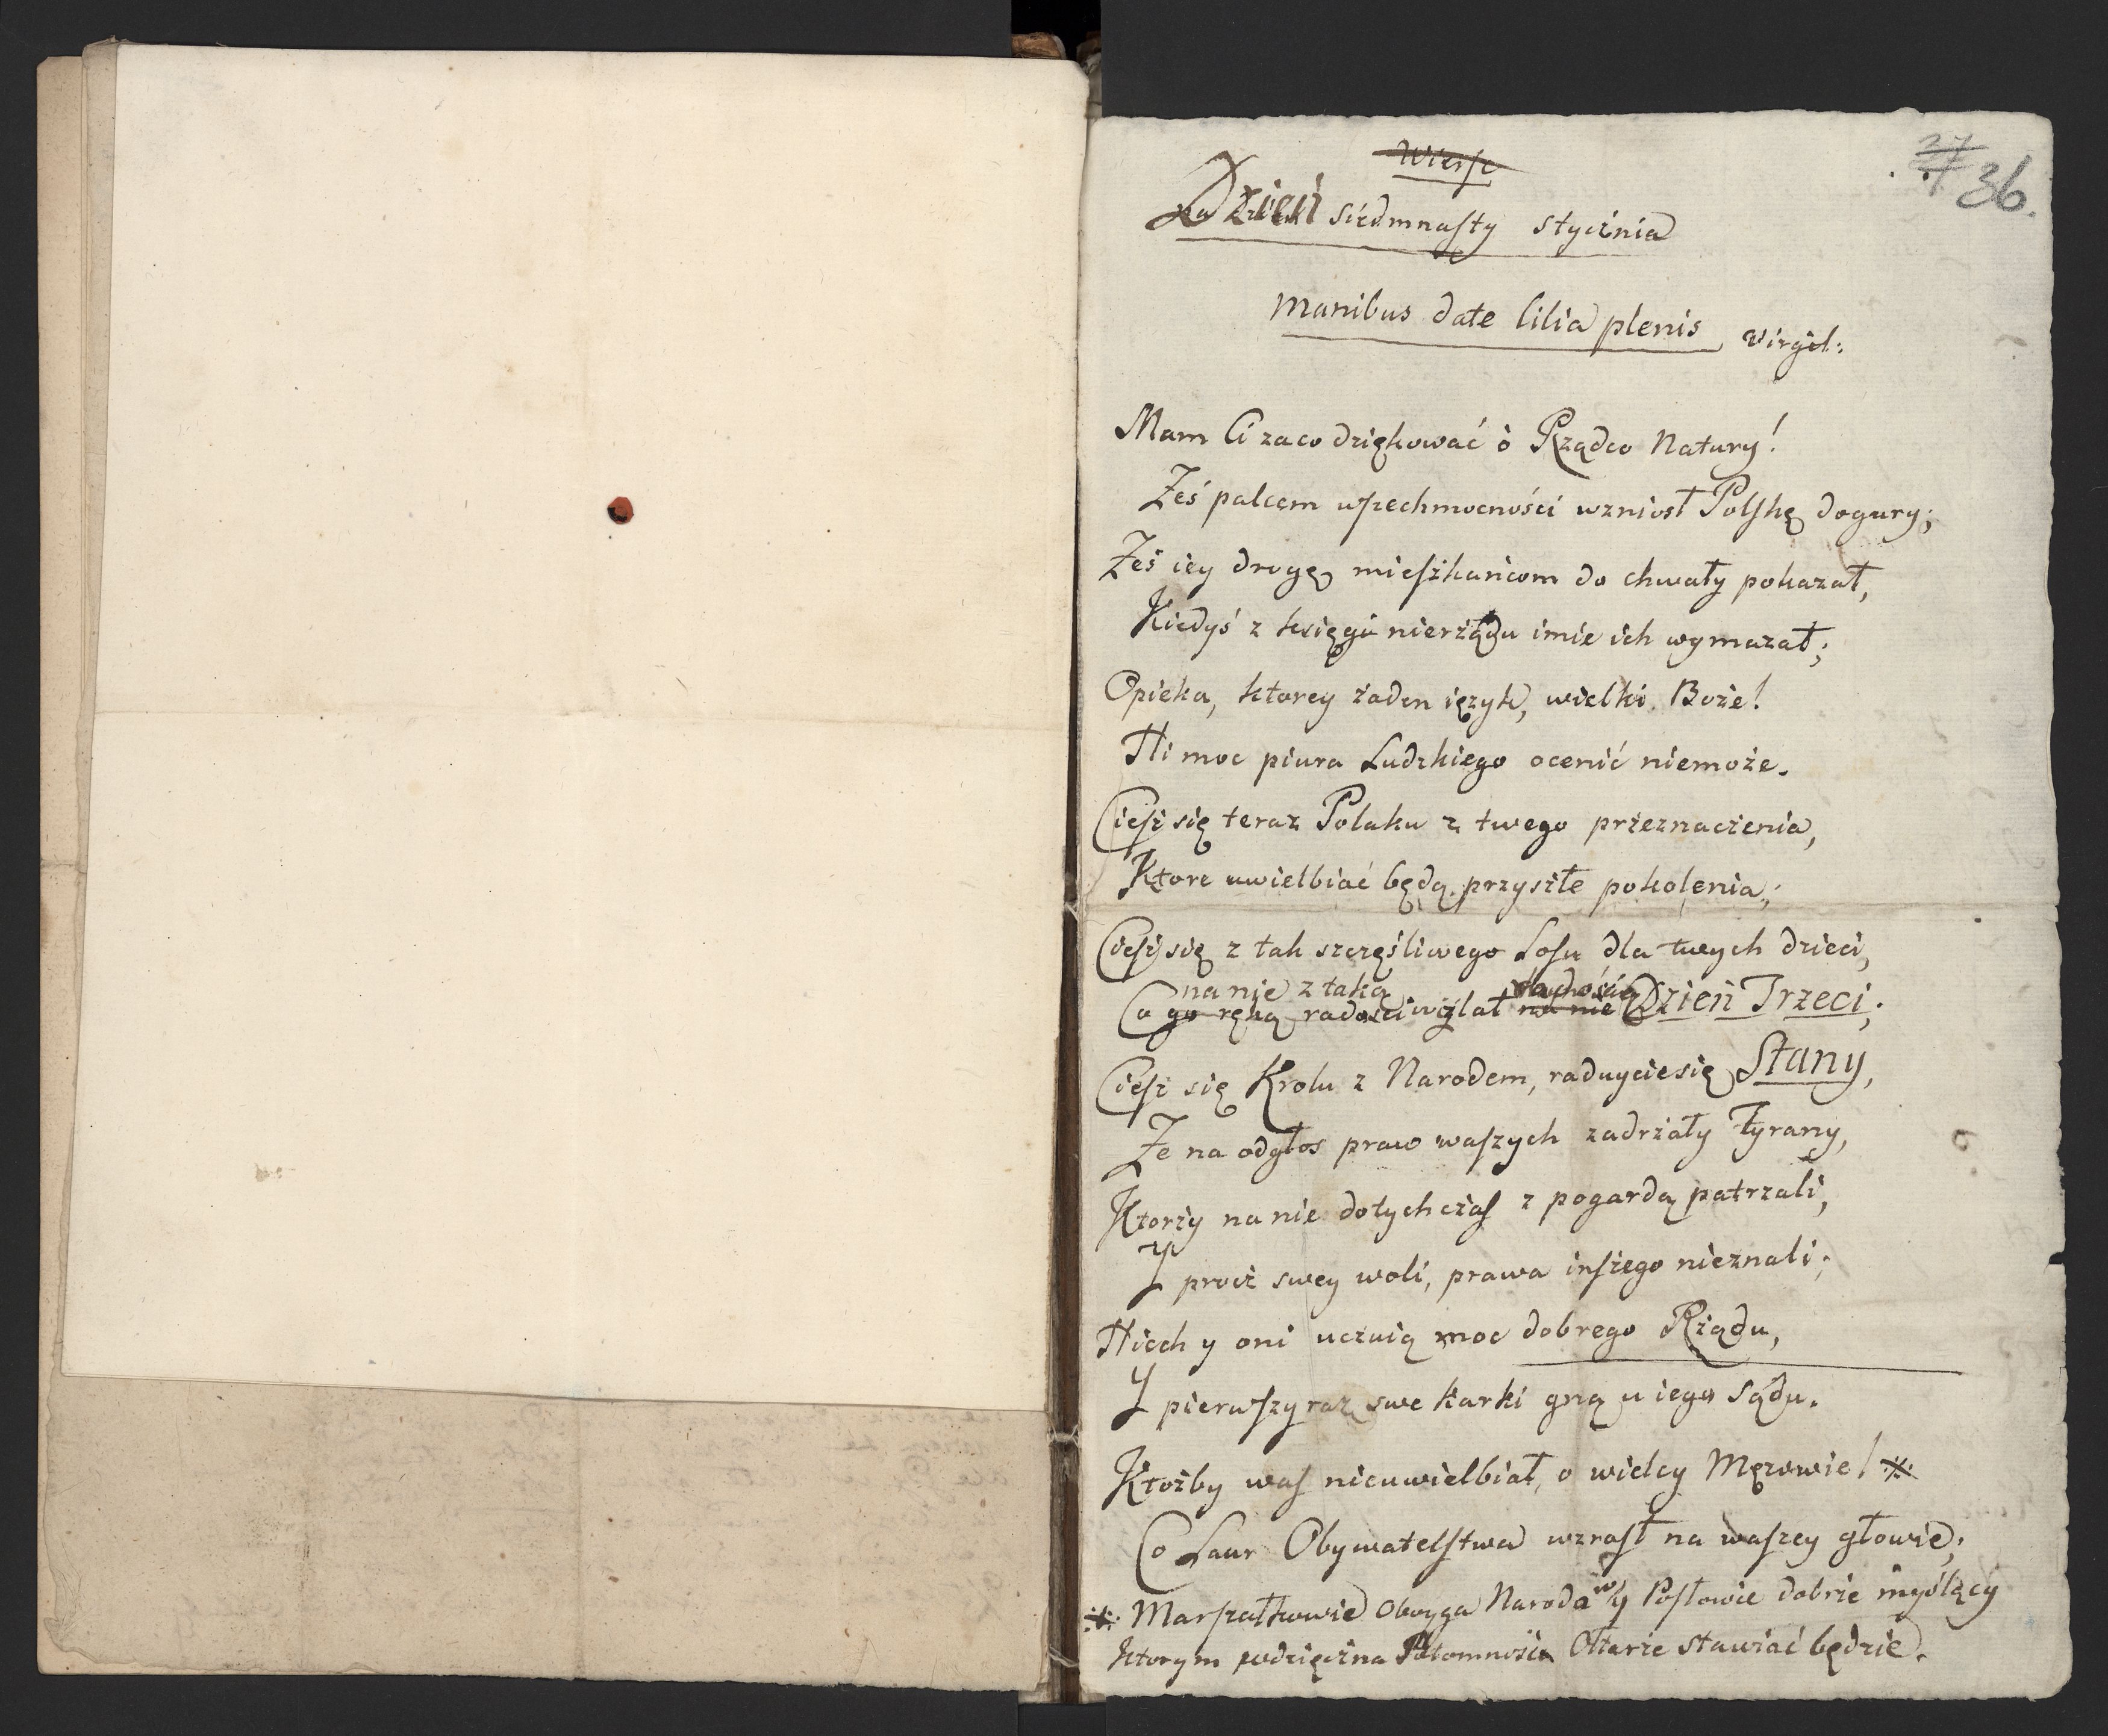 27 36.
Wiersz
Dzień siedmnasty stycznia
Manibus date lilia plenis Virgil:
Mam Ci zaco dziękować ò Rządco Natury!
Żeś palcem wszechmocności wzniosł Polskę dogury;
Żeś iey drogę mieszkańcom do chwały pokazał,
Kiedyś z księgi nierządu imie ich wymazał;
Opieka, ktorey żaden ięzyk, wielki Boże!
Ni moc piura Ludzkiego ocenić niemoże.
Ciesz się teraz Polaku z twego przeznaczenia,
Ktore uwielbiać będą przyszłe pokolenia;
Ciesz się z tak szczęśliwego Losu dla twych dzieci,
na nie z taką
Co go ręką radości wylał na nie Dzień Trzeci;
Ciesz się Krolu z Narodem, raduycie się Stany,
Że na odgłos praw waszych zadrżały Tyrany,
Ktorzy na nie dotychczas z pogardą patrzali,
Y procz swey woli, prawa inszego nieznali;
Niech y oni uczuią moc dobrego Rządu,
Y pierwszy raz swe karki gną u iego sądu.
Ktożby was nieuwielbiał, o wielcy Mężowie! *
Co Laur Obywatelstwa wzrasł na waszey głowie;
* Marszałkowie oboyga Narodow y Posłowie dobrze myślący
Ktorym wdzięczna Potomność Ołtarze stawiać będzie.